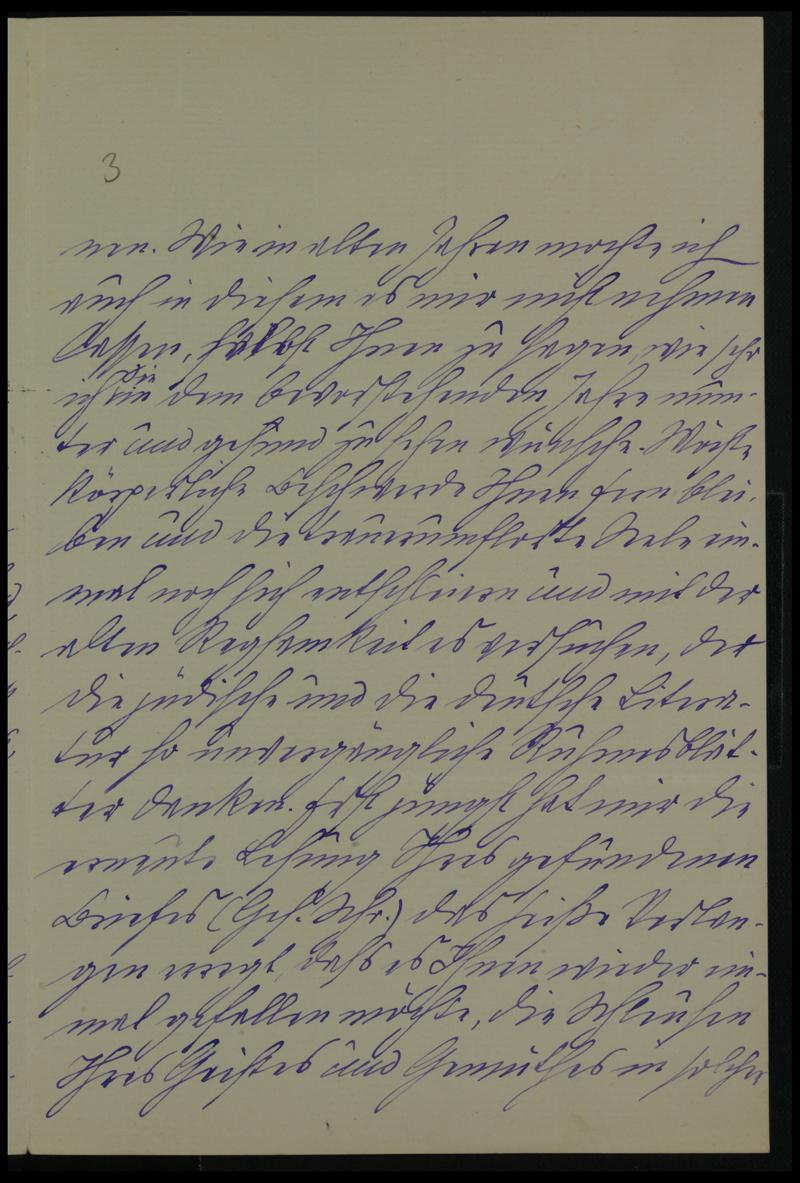 3
nen. Wie in alten Jahren mochte ich
auch in diesem es mir nicht nehmen
lassen, selbst Ihnen zu sagen, wie sehr
ich Sie in dem bevorstehenden Jahre mun-
ter und gesund zu sehen wünsche. Möchte
körperliche Beschwerde Ihnen fern blei-
ben und die trauerumflorte Seele ein-
mal noch sich entschleiern und mit der
alten Regsamkeit es versuchen, der
die jüdische und die deutsche Litera-
tur so unvergängliche Ruhmesblät-
ter danken. Erst jüngst hat mir die
erneute Lesung Ihres gefundenen
Briefes (Ges. Schr.) das heiße Verlan-
gen erregt, dass es Ihnen wieder ein-
mal gefallen möchte, die Schleusen
Ihres Geistes und Gemüthes in solcher